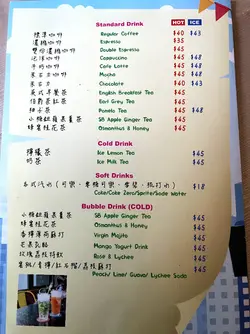 Standard Drink HOT ICE
標準咖啡 Regular Coffee $40 $43
濃縮咖啡 Espresso $35
雙份濃縮咖啡 Double Espresso $45
泡沫咖啡 Cappuccino $45 $48
牛奶咖啡 Cafe Latte $45 $48
朱古力咖啡 Mocha $45 $48
朱古力 Chocolate $40 $43
英式早餐茶 English Breakfast Tea $45
伯爵茶 Earl Grey Tea $45
柚子茶 Pomelo Tea $45 $48
SB Apple Ginger Tea $45
蜂蜜桂花茶 Osmanthus & Honey $45
Cold Drink
檸檬茶 Ice Lemon Tea $45
奶茶 Ice Milk Tea $45
Soft Drinks
各式汽水 $18
Coke/Coke Zero/Sprite/Soda Water
Bubble Drink (COLD)
SB Apple Ginger Tea $45
蜂蜜桂花茶 Osmanthus & Honey $45
Virgin Mojito $45
芒果乳酪 Mango Yogurt Drink $45
玫瑰荔枝特飲 Rose & Lychee $45
$45
Peach/ Lime/ Guava/ Lychee Soda